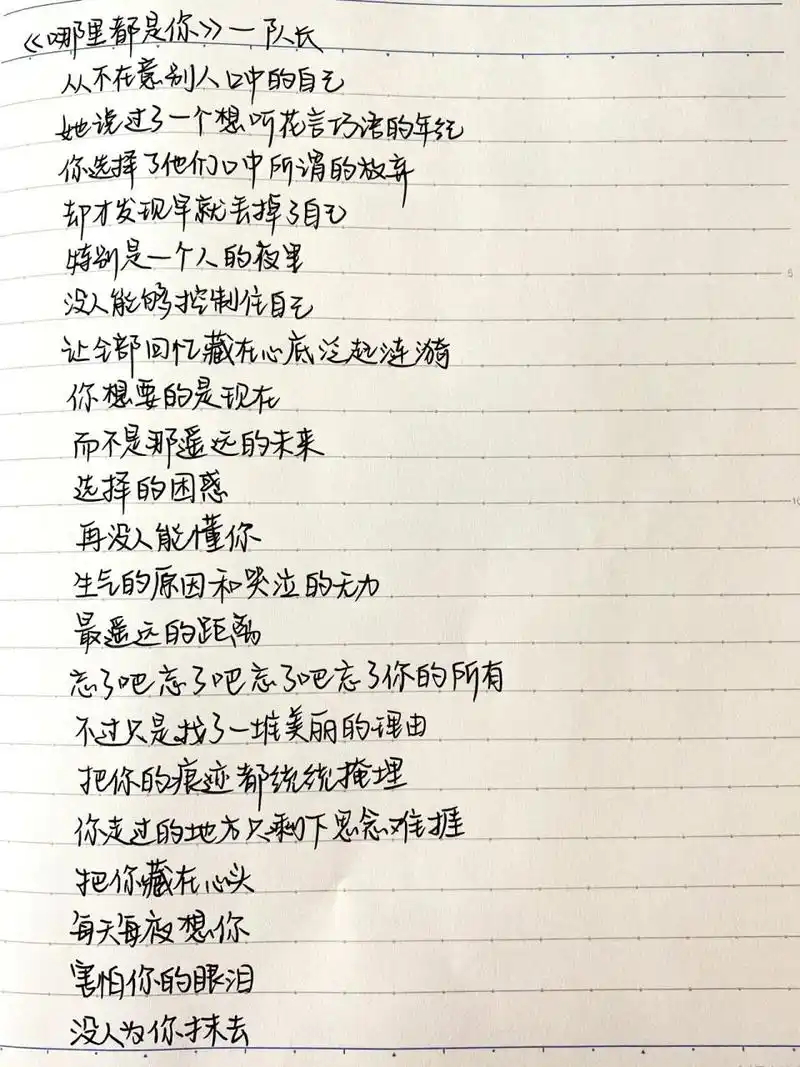 《哪里都是你》—队长
从不在意别人口中的自己
她说过了一个想听花言巧语的年纪
你选择了他们口中所谓的放弃
却才发现早就丢掉了自己
特别是一个人的夜里
没人能够控制住自己
让全部回忆藏在心底泛起涟漪
你想要的是现在
而不是那遥远的未来
选择的困惑
再没人能懂你
生气的原因和哭泣的无力
最遥远的距离
忘了吧忘了吧忘了吧忘了你的所有
不过只是找了一堆美丽的理由
把你的痕迹都统统掩埋
你走过的地方只剩下思念难捱
把你藏在心头
每天每夜想你
害怕你的眼泪
没人为你抹去
5
10